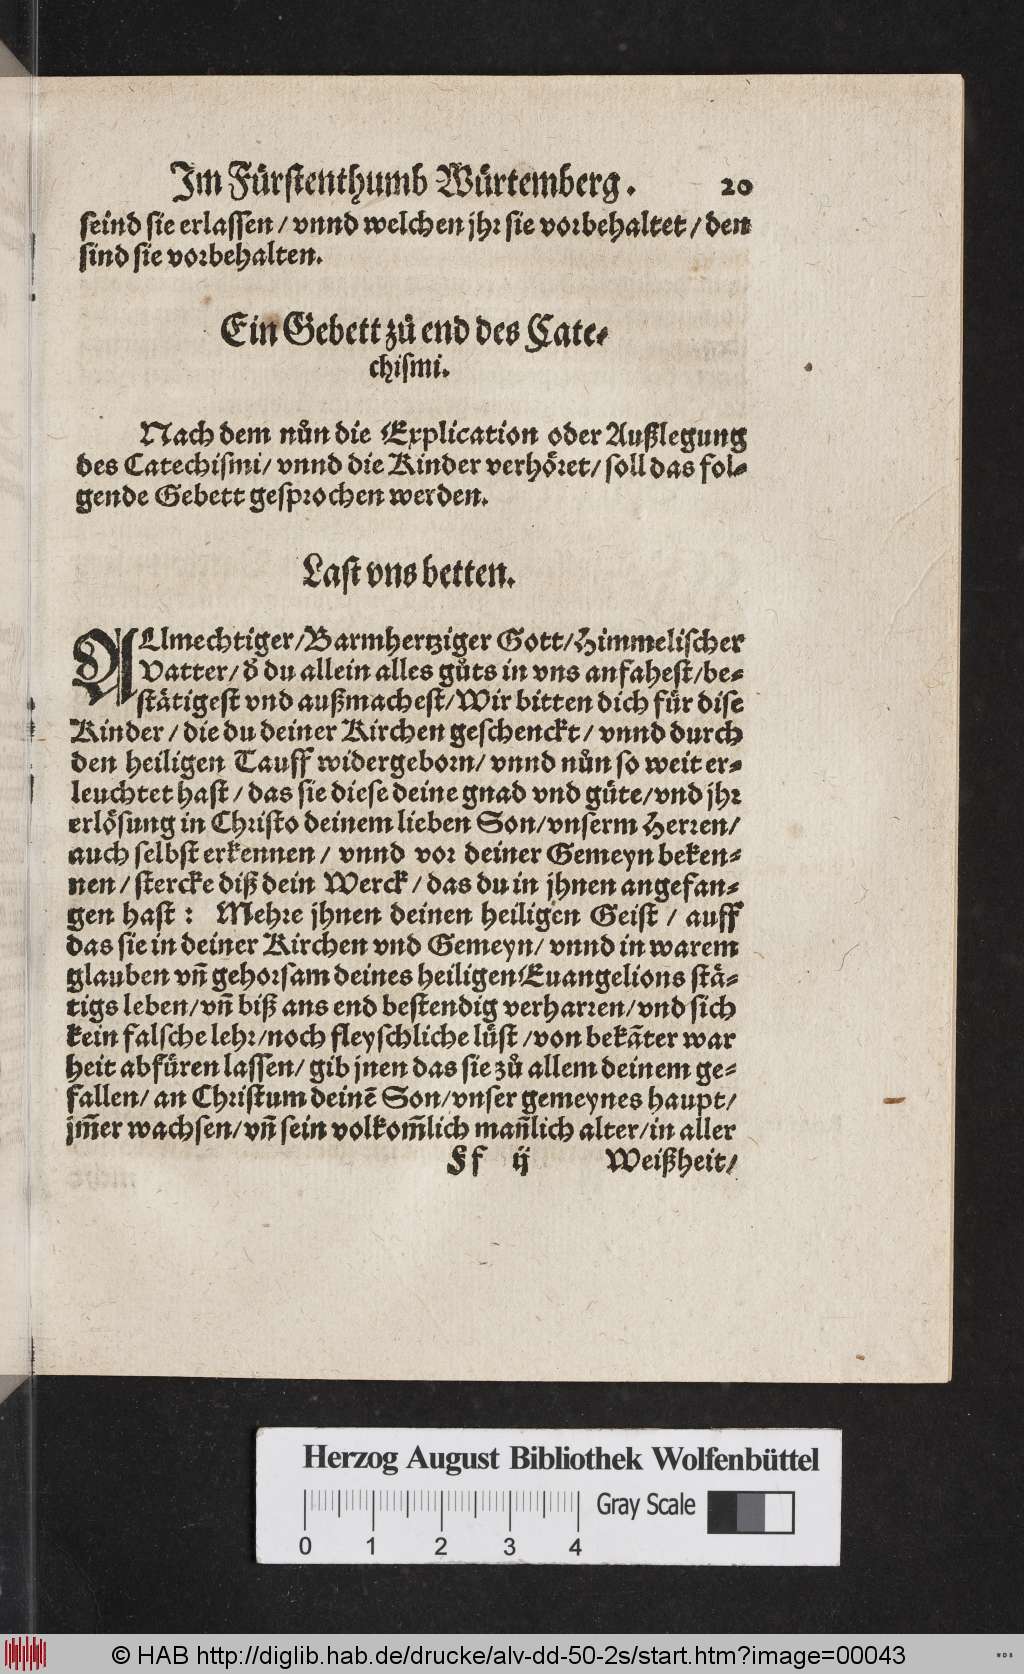 Im Fürstenthumb Würtemberg. 20
seind sie erlassen / vnnd welchen jhr sie vorbehaltet / den
sind sie vorbehalten.
Ein Gebett zů end des Cate-
chismi.
Nach dem nůn die Explication oder Außlegung
des Catechismi / vnnd die Kinder verhöret / soll das fol-
gende Gebett gesprochen werden.
Last vns betten.
ALlmechtiger / Barmhertziger Gott / Himmelischer
Vatter / d̕ du allein alles gůts in vns anfahest / be-
stätigest vnd außmachest / Wir bitten dich für dise
Kinder / die du deiner Kirchen geschenckt / vnnd durch
den heiligen Tauff widergeborn / vnnd nůn so weit er-
leuchtet hast / das sie diese deine gnad vnd güte / vnd jhr
erlösung in Christo deinem lieben Son / vnserm Herren /
auch selbst erkennen / vnnd vor deiner Gemeyn beken-
nen / stercke diß dein Werck / das du in jhnen angefan-
gen hast : Mehre jhnen deinen heiligen Geist / auff
das sie in deiner Kirchen vnd Gemeyn / vnnd in warem
glauben vñ gehorsam deines heiligen Euangelions stä-
tigs leben / vñ biß ans end bestendig verharren / vnd sich
kein falsche lehr / noch fleyschliche lüst / von bekãter war
heit abfüren lassen / gib jnen das sie zů allem deinem ge-
fallen / an Christum deinẽ Son / vnser gemeynes haupt /
jm̃er wachsen / vñ sein volkom̃lich mañlich alter / in aller
Ff ij Weißheit /
Herzog August Bibliothek Wolfenbüttel
Gray Scale
0 1 2 3 4
© HAB http://diglib.hab.de/drucke/alv-dd-50-2s/start.htm?image=00043